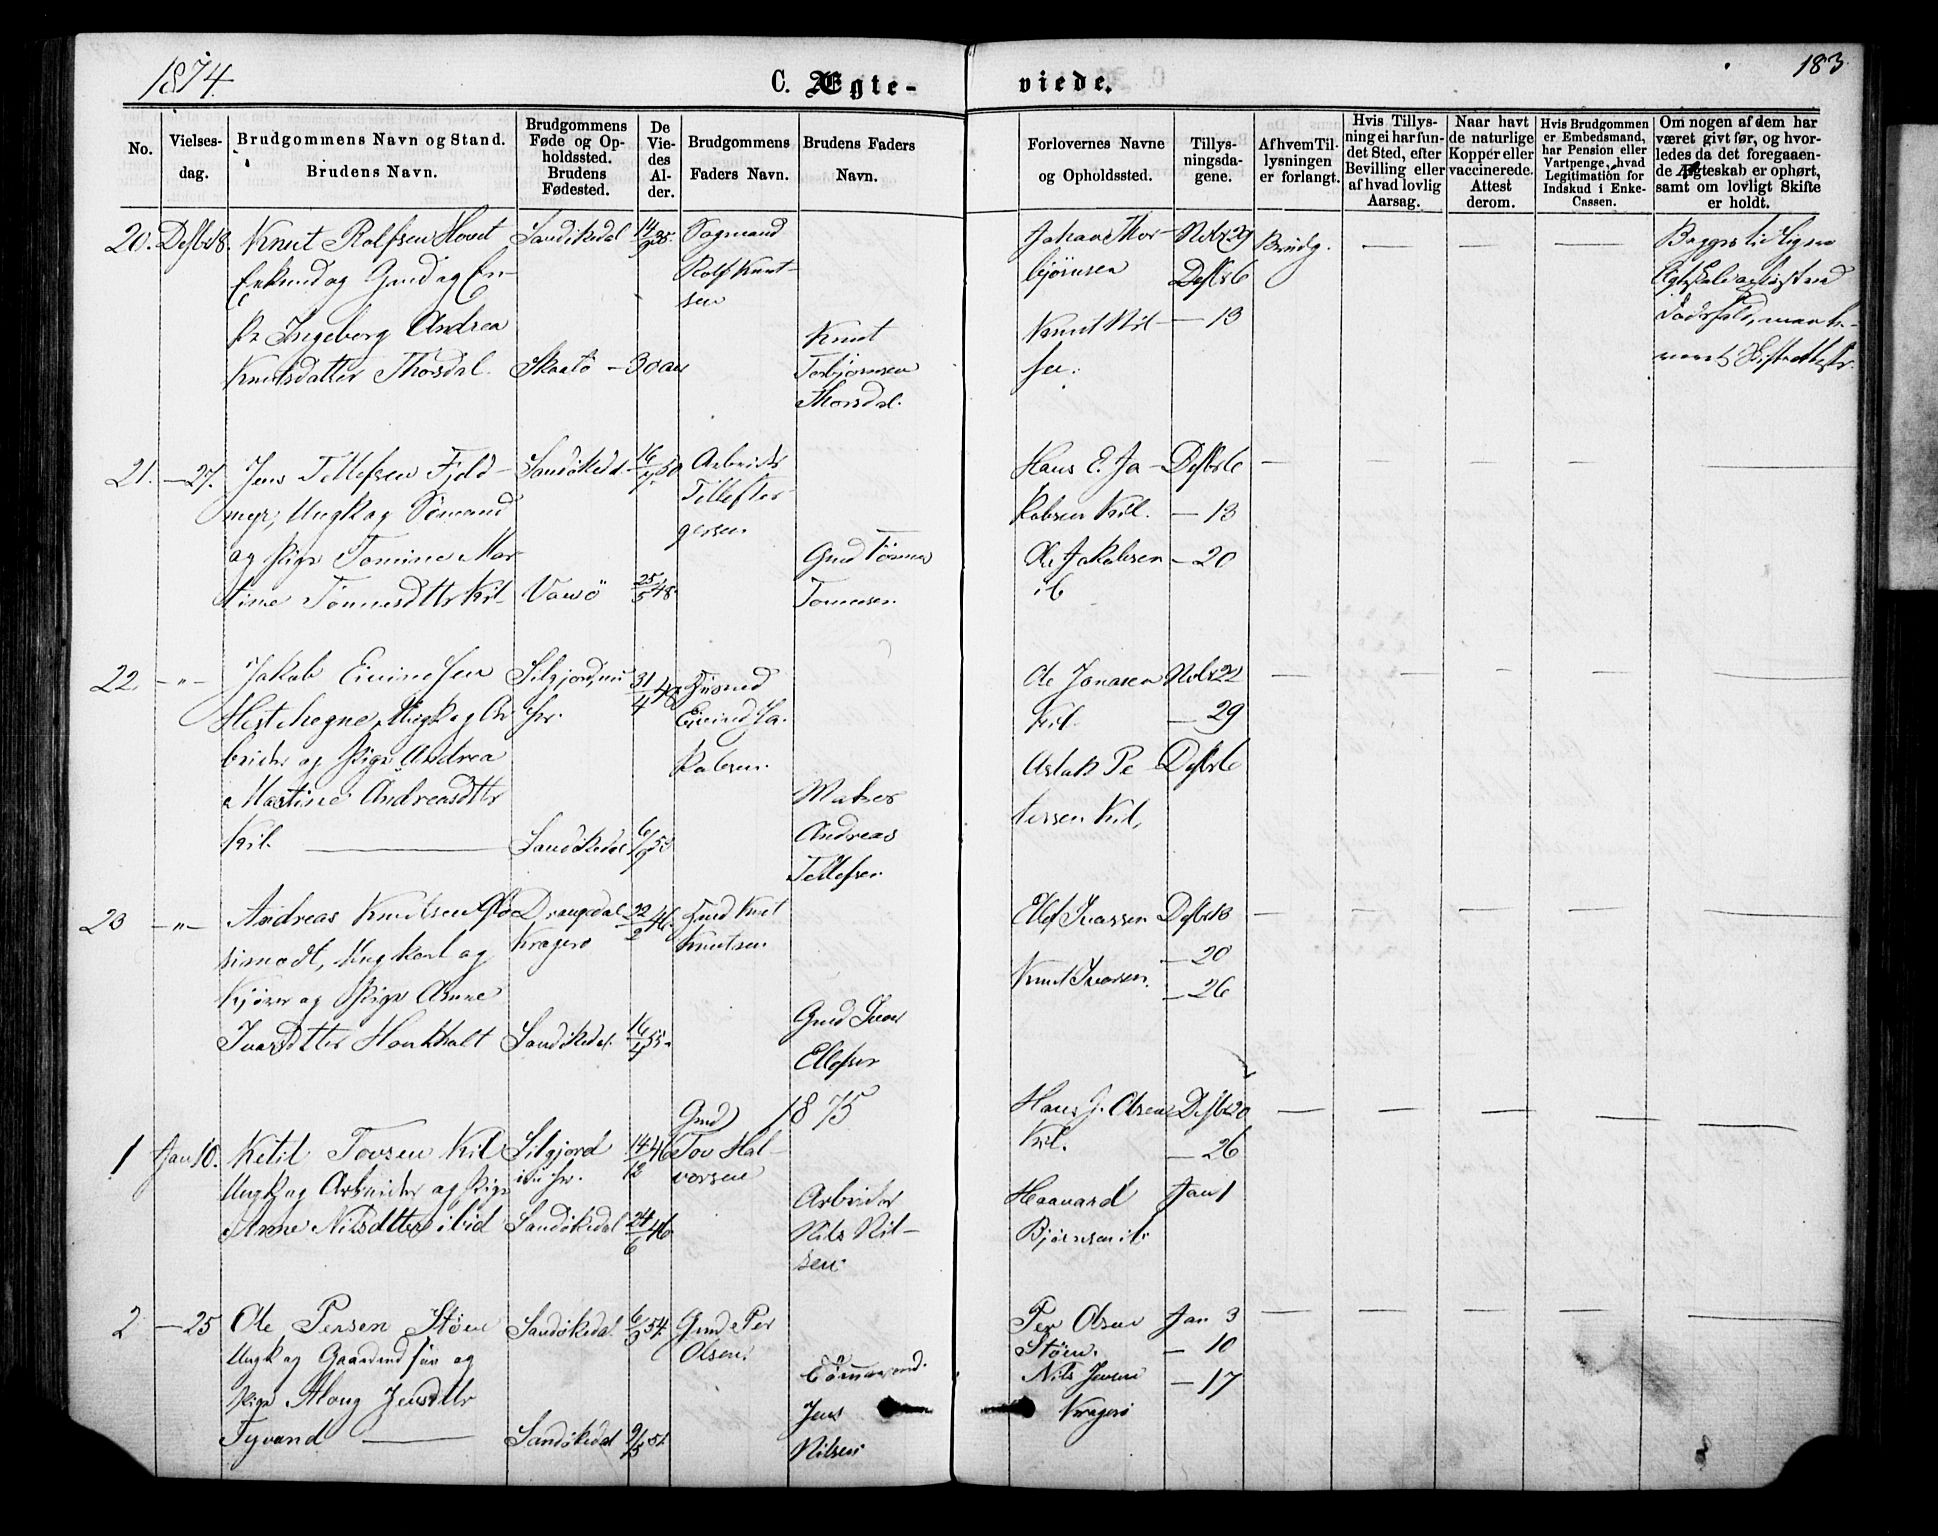 1874.
C. Ægte-
viede.
183
No.
Vielses-
dag.
Brudgommens Navn og Stand.
Brudens Navn.
Brudgommens
Føde og Op-
holdssted.
Brudens
Fødested.
De
Vie-
des
Al-
der.
Brudgommens
Faders Navn.
Brudens Faders
Navn.
Forlovernes Navne
og Opholdssted.
Tillys-
ningsda-
gene.
Af hvem Til-
lysningen
er forlangt.
Hvis Tillys-
ning ei har fun-
det Sted, efter
Bevilling eller
af hvad lovlig
Aarsag.
Naar havt
de naturlige
Kopper eller
vaccinerede.
Attest
derom.
Hvis Brudgommen
er Embedsmand,
har Pension eller
Vartpenge, hvad
Legitimation for
Indskud i Enke-
Cassen.
Om nogen af dem har
været givt før, og hvor-
ledes da det foregaaen-
de Ægteskab er ophørt,
samt om lovligt Skifte
er holdt.
20. Desbr 18.
Knut Rolfsen Hovet
Enkemd og Gmd og En-
ke Ingeborg Andrea
Knutsdatter Thorsdal.
Sandøkedal
Skaatø
30 aar
Rolf Knut-
sen
Knut
Torbjørnsen
Thorsdal.
Johan Thor-
bjørnsen
Knut Nil-
sen.
Novbr 29
Desbr 6
— 13
Brudg.
21. — 27.
Jens Tellefsen Fjeld-
myr, Ungk og Sømand
og Pige Tomine Mar-
tine Tønnesdttr Kil
Sandøkedal
16/7 50
25/5 48.
Arbeider
Tellef Ter-
gersen
Gmd Tønnes
Hans E. Ja-
kobsen Kil.
Ole Jakobsen
ib
Desbr 6
— 13
— 20
22. — " —
Jakob Eivindsen
Hestehegne, Ungk og Ar-
beider og Pige Andrea
Martine Andreasdttr
Kil.
Siljord,
Sandøkedal
31/4 48
6/9 53
Eivind Ja-
kobsen.
Andreas
Tellefsen
Ole Jonasen
Kil.
Aslak Pe-
tersen Kil,
Novbr 22
— 29
Desbr 6
23 — " —
Andreas Knutsen
Ungkarl og
og Pige Anne
Ivarsdtter
Drangedal
Kragerø
Sandøkedal.
22/2 46.
16/4 55
Gmd Knut
Knutsen
Gmd Ivar
Ellefsen
Ellef Ivarsen
Knut Ivarsen.
Desbr 13
— 20
— 26
1875
1 Jan 10.
Ketil Tovsen Kil
Ungk og Arbeider og Pige
Anne Nilsdtter ibid
Siljord
Sandøkedal
14/12 46
24/6 46
Gmd
Tov Hal-
vorsen
Arbeider
Nils Nil-
sen.
Hans J. Olsen
Kil.
Haavard
Bjørnsen ib
Desbr 20
— 26
Jan 1
2 — 25
Ole Persen Støen
Ungk og Gaardmdsøn og
Pige Aslaug Jensdttr
Tyvand
Sandøkedal.
Sandøkedal
6/3 54.
9/3 51.
Gmd Per
Olsen.
Tømmermd.
Jens
Nilsen
Per Olsen
Støen.
Nils Jensen
Kragerø
Jan 3
— 10
— 17